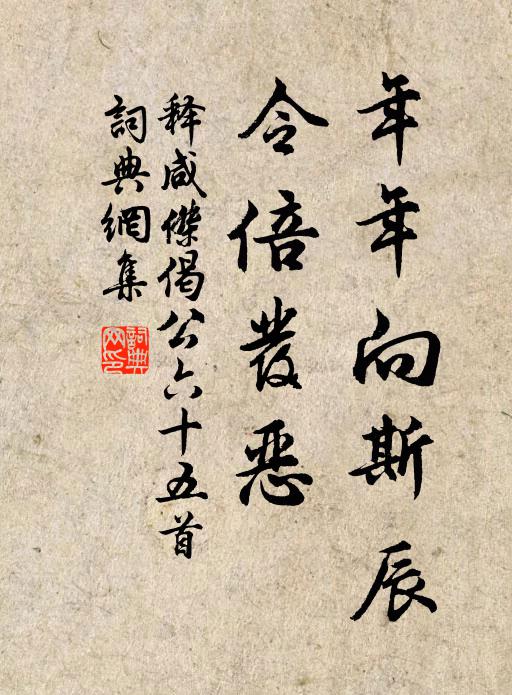 年年向斯辰
令倍發惡
释咸傑偈公六十五首
詞典網集
詞典
网印